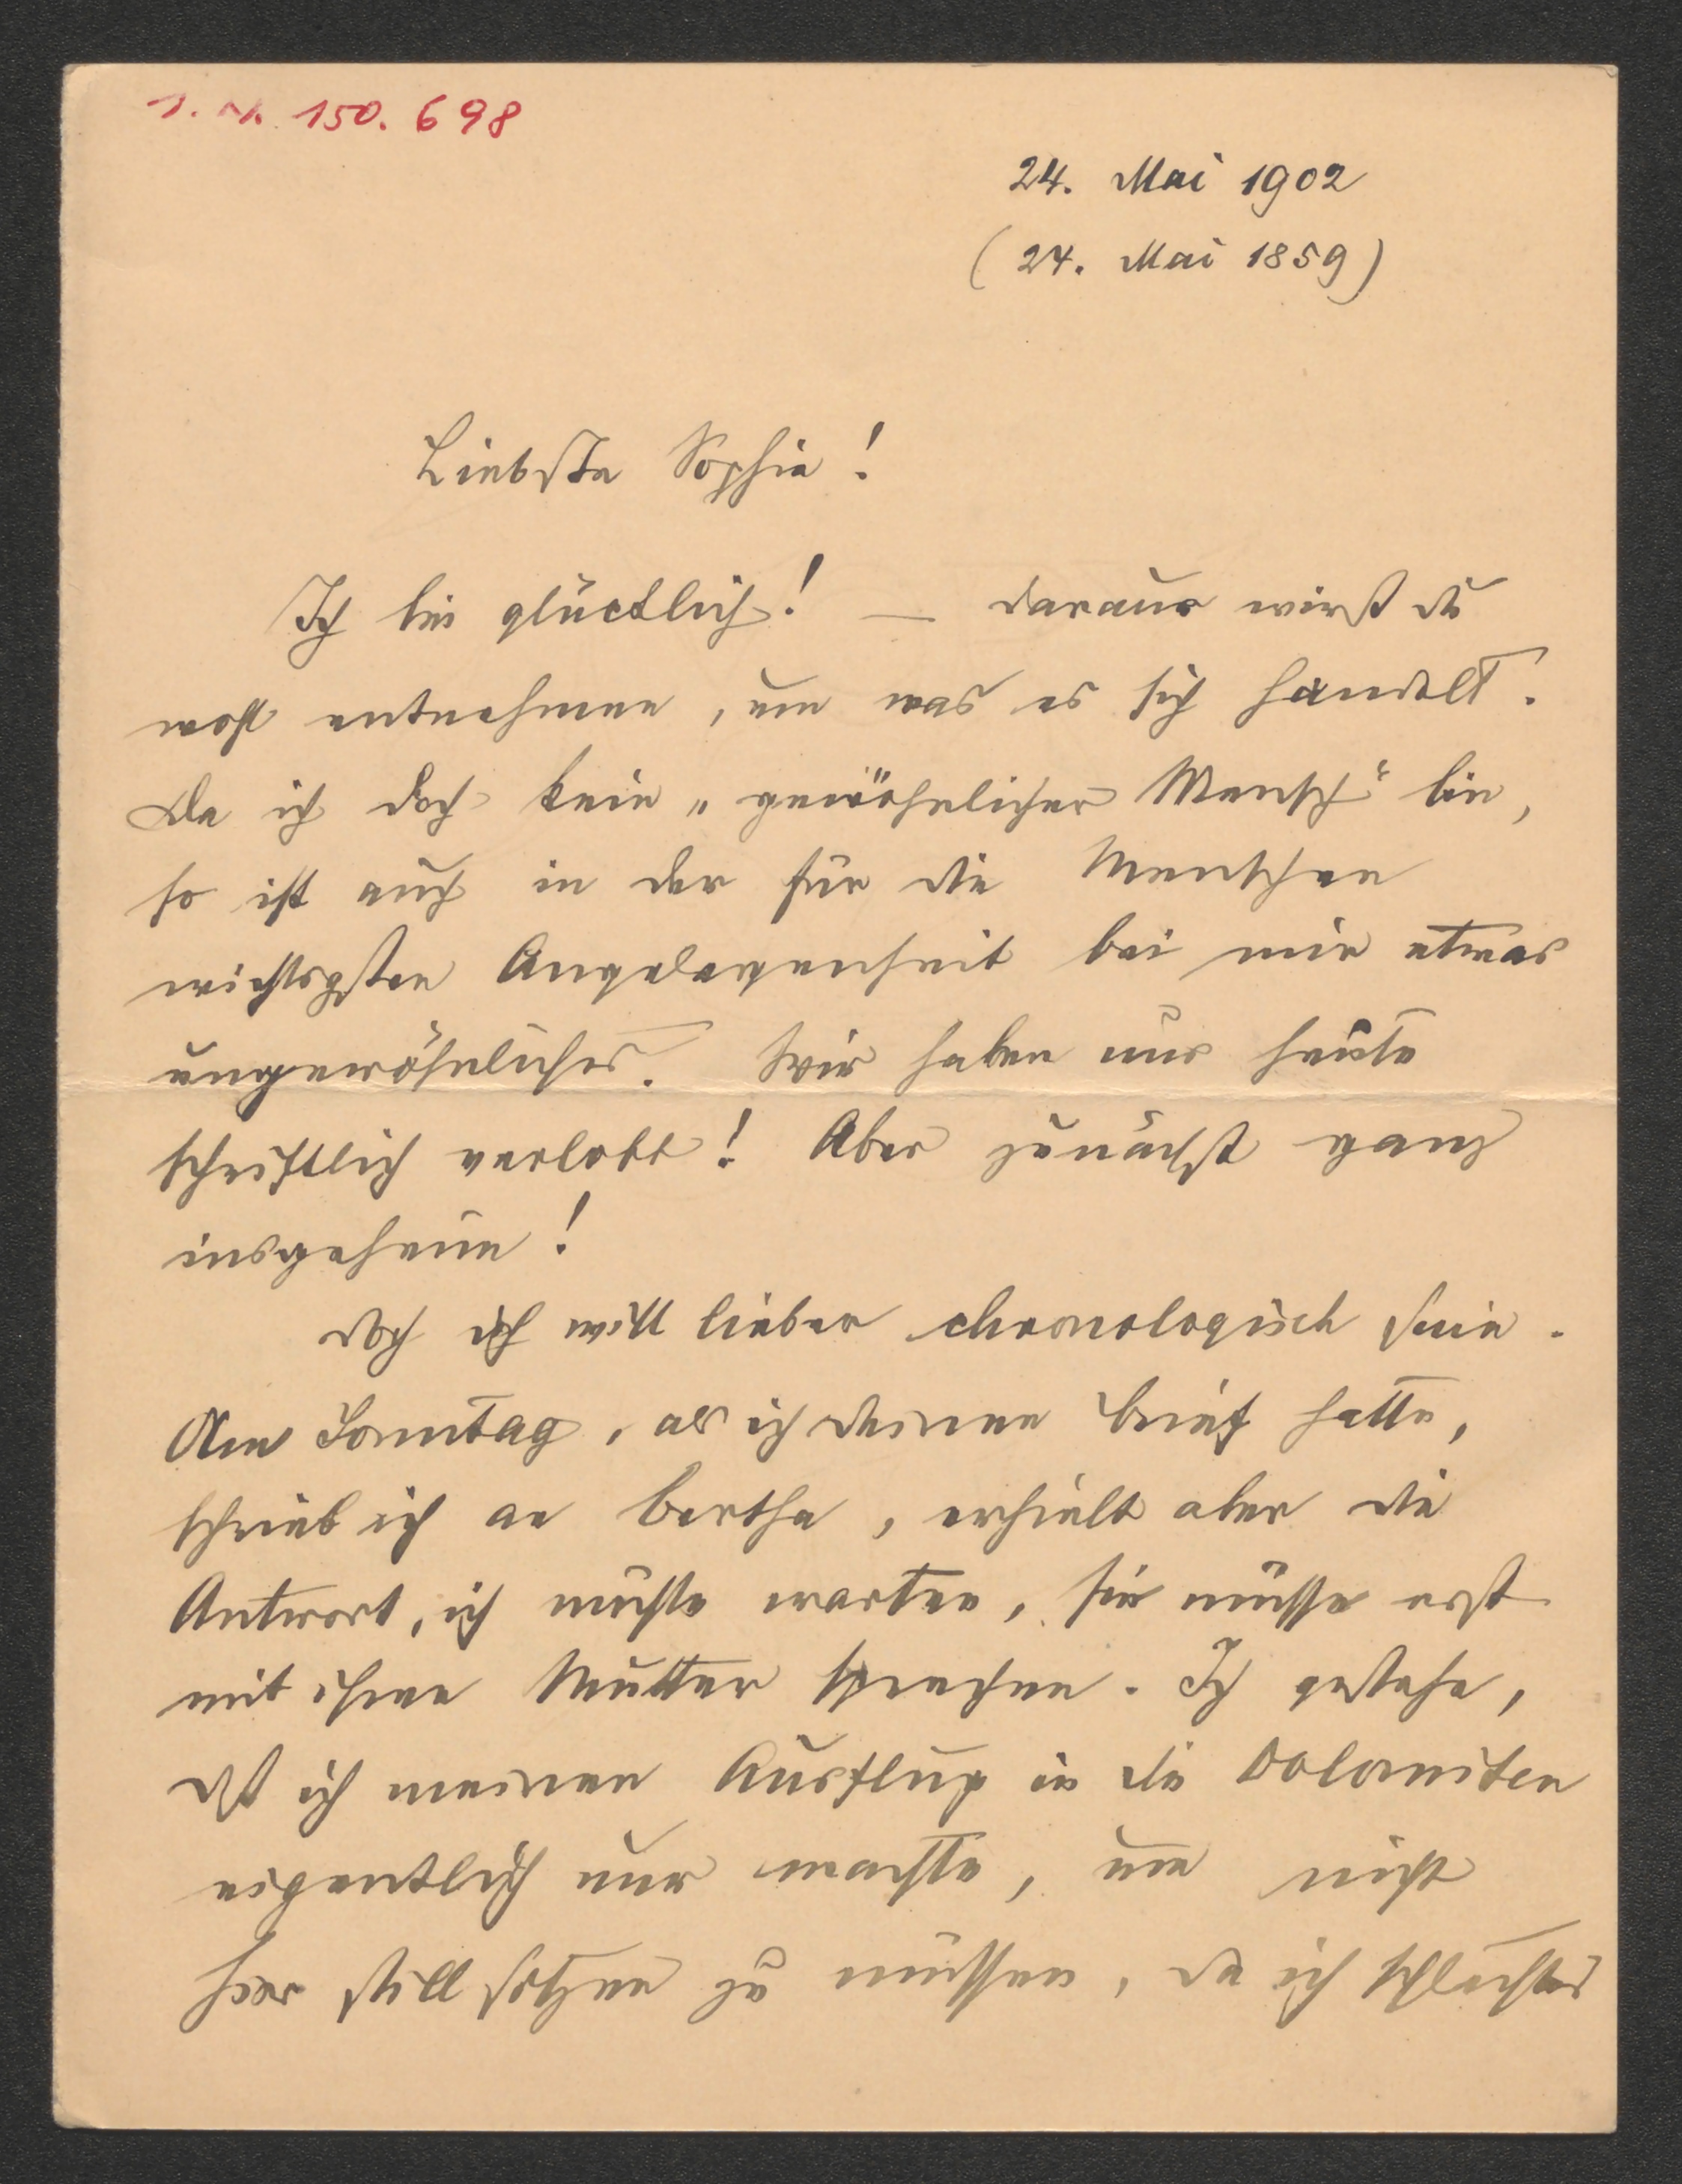 I. N. 150.698
24. Mai 1902
(24. Mai 1859)
Liebste Sophie!
Ich bin glücklich! — daraus wirst du
wohl entnehmen, um was es sich handelt.
Da ich doch kein „gewöhnlicher Mensch" bin,
so ist auch in der für die Menschen
wichtigsten Angelegenheit bei mir etwas
ungewöhnliches. Wir haben uns heute
schriftlich verlobt! Aber zunächst ganz
insgeheim!
Doch ich will lieber chronologisch sein.
Am Sonntag, als ich deinen Brief hatte,
schrieb ich an Bertha, erhielt aber die
Antwort, ich müsste warten, sie müsse erst
mit ihrer Mutter sprechen. Ich gestehe,
dß ich meinen Ausflug in die Dolomiten
eigentlich nur machte, um nicht
hier still sitzen zu müssen, da ich schlechtes